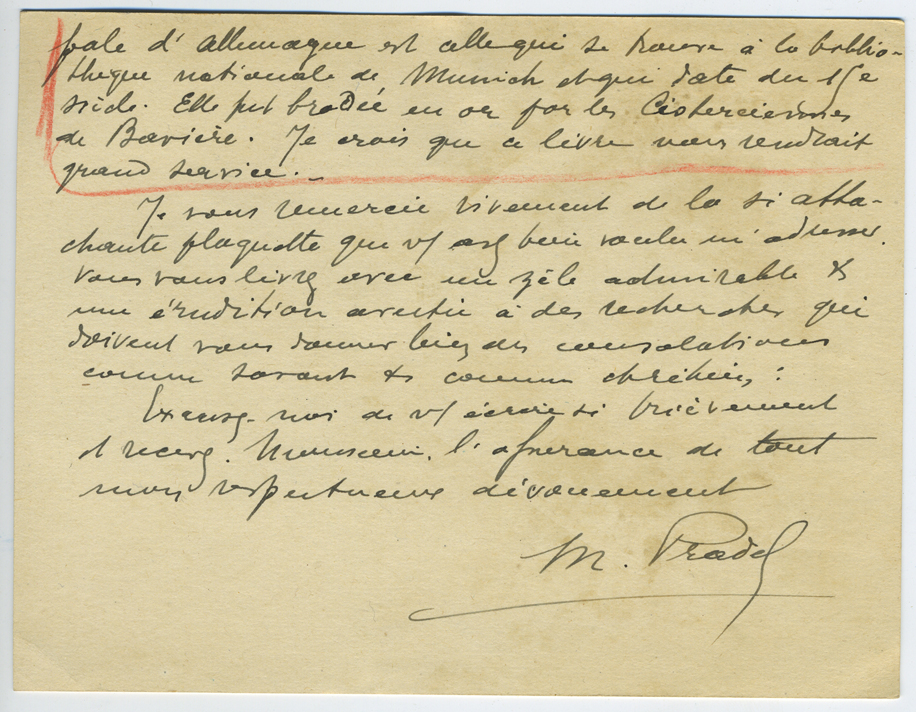 pale d'Allemagne est celle qui se trouve à la biblio-
thèque nationale de Munich et qui date du 15e
siècle. Elle fut brodée en or par les Cisterciennes
de Bavière. Je crois que ce livre vous rendrait
grand service._
Je vous remercie vivement de la si atta-
chante plaquette que v/ avez bien voulu m'adresser.
Vous vous livrez avec un zèle admirable &
une érudition avertie à des recherches qui
doivent vous donner bien des consolations
comme savant & comme chrétien !
Excusez-moi de v/ écrire si brièvement
et recevez, Monsieur, l'assurance de tout
mon respectueux dévouement
M. Pradel